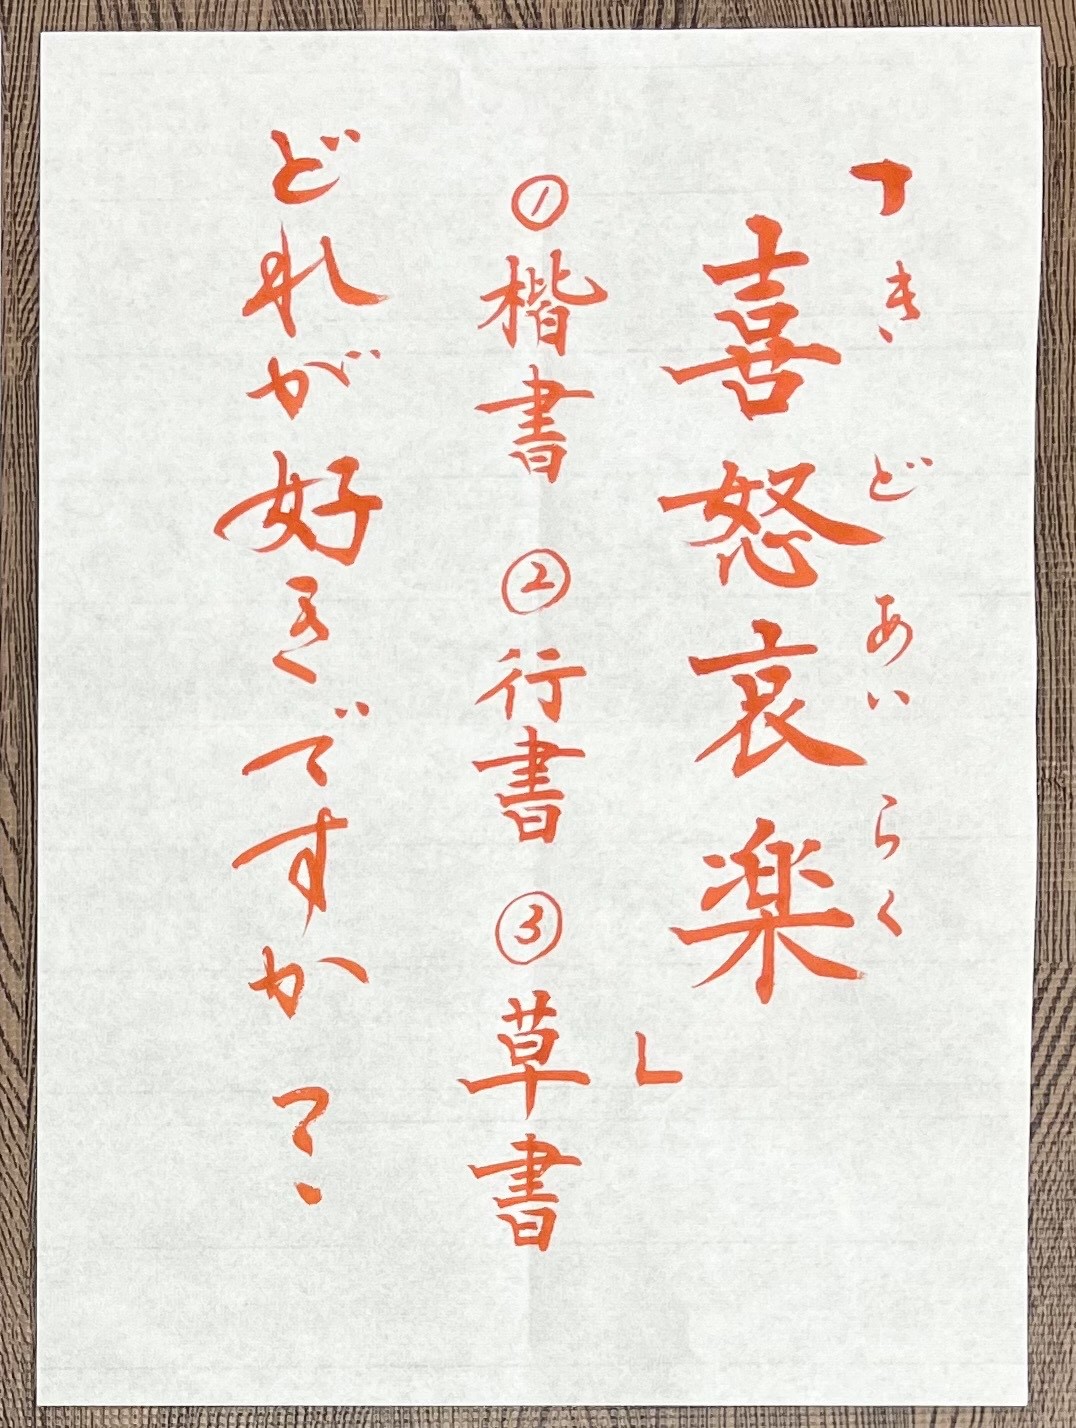 「喜怒哀楽」
きどあいらく
①楷書 ②行書 ③草書
どれが好きですか?